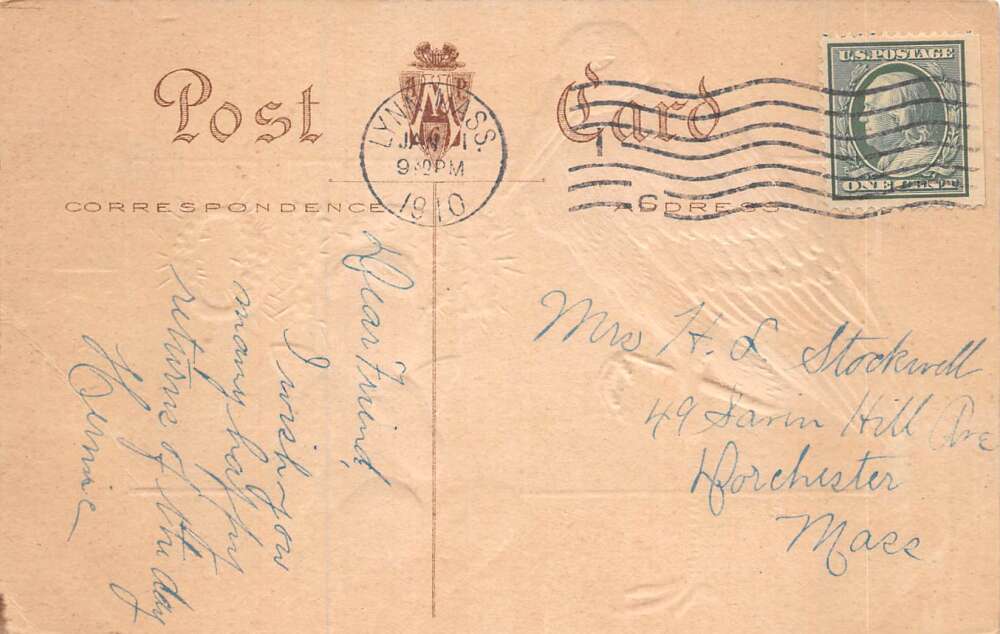 Post Card
LYNN, MASS.
JAN 1
9 PM
1910
6
U.S. POSTAGE
ONE CENT
CORRESPONDENCE
ADDRESS
Dear Friend,
I wish you
many happy
returns of the day
Mrs H. L Stockwell
49 Savin Hill Ave
Dorchester
Mass